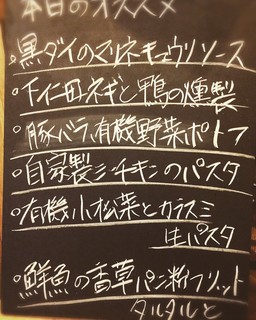 本日のオススメ
黒ダイのマリネキュウリソース
千住ネギと鴨の燻製
豚バラ、有機野菜ポトフ
自家製シーチキンのパスタ
有機小松菜とカラスミ
生パスタ
鮮魚の香草パン粉フリット
タルタルと